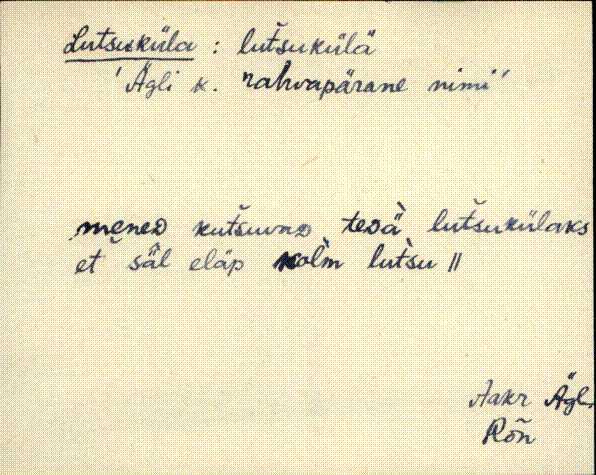 Lutsuküla : lut̆sukülä
'Ägli k. rahvapärane nimi'
meneᴅ kut̆suvaᴅ teᴅä̀ lut̆sukülaks
et s̆äl eläp kolm̀ lut̀su ||
Aakr Ägli
Rõn